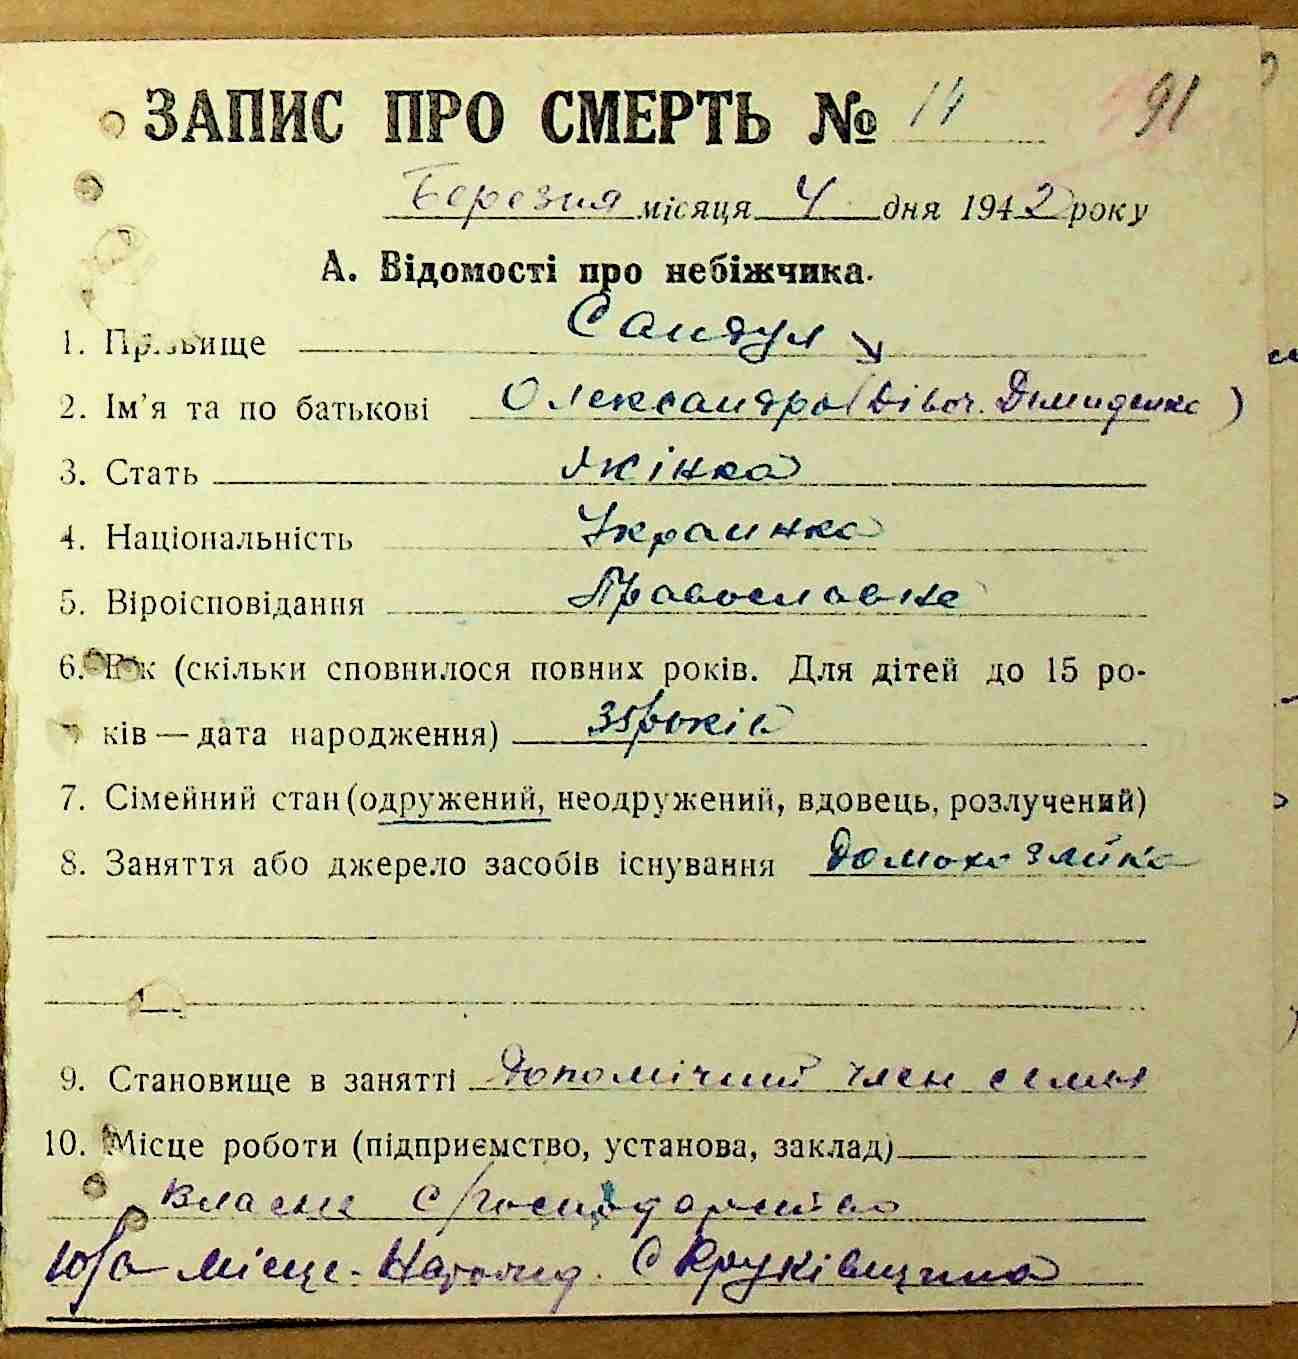 ЗАПИС ПРО СМЕРТЬ № 14 91
Березня місяця 4 дня 1942 року
А. Відомості про небіжчика.
1. Прізвище Сандул
2. Ім'я та по батькові Олександра (Дівоч. Демиденко)
3. Стать Жінка
4. Національність Украинка
5. Віроісповідання Православне
6. Вік (скільки сповнилося повних років. Для дітей до 15 ро-
ків — дата народження) 35 років
7. Сімейний стан (одружений, неодружений, вдовець, розлучений)
8. Заняття або джерело засобів існування Домохозяйка
9. Становище в занятті Допомічний член семьи
10. Місце роботи (підприємство, установа, заклад)
власне с/господарство
10/а Місце. Народж. С Круківщина